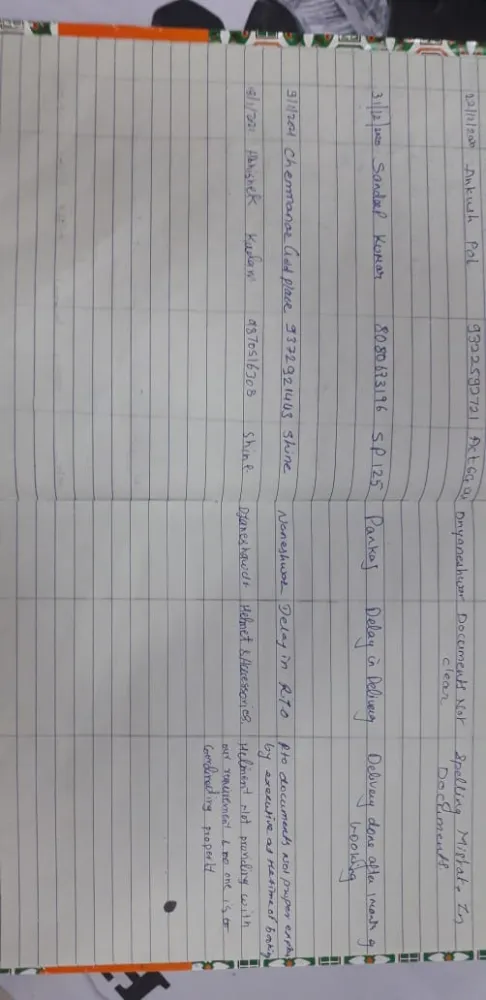 22/12/2020 Ankush Pal 9322592721 Activa Dnyaneshwar Documents Not Spelling Mistake In
clear Documents
31/12/2020 Sandeep Kumar 8080673196 SP125 Pankaj Delay in Delivery Delivery done after 1 month of
booking
9/1/2021 Gold place 9372921403 Shine Naneshwar Delay in RTO Rto documents Not proper
by executive at the time of booking
18/1/2021 Abhishek Kadam 9870516303 Shine Djaneshawar Helmet & Accessories. Helment Not providing with
our requirement & no one is to
Cordinating properly